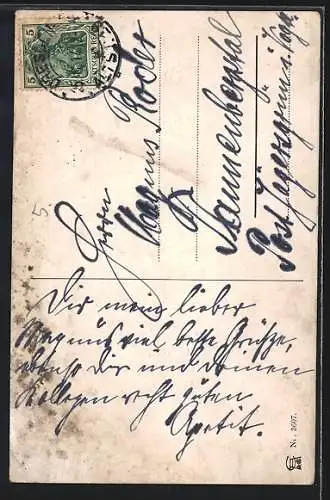 5 5
Herrn
Magnus Roder
Tannenbergsthal
Post Jägersgrün i. Vogtl.
5.
Dir mein lieber
Magnus viel beste Grüsse,
ebenso Dir und Deinen
Kollegen recht guten
Apetit.
N. 3607.